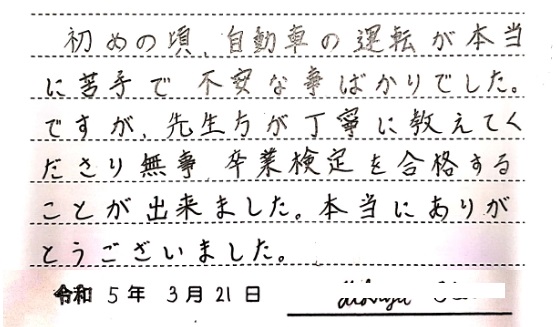 初めの頃、自動車の運転が本当
に苦手で不安な事ばかりでした。
ですが、先生方が丁寧に教えてく
ださり無事、卒業検定を合格する
ことが出来ました。本当にありが
とうございました。
令和 5年 3月 21日